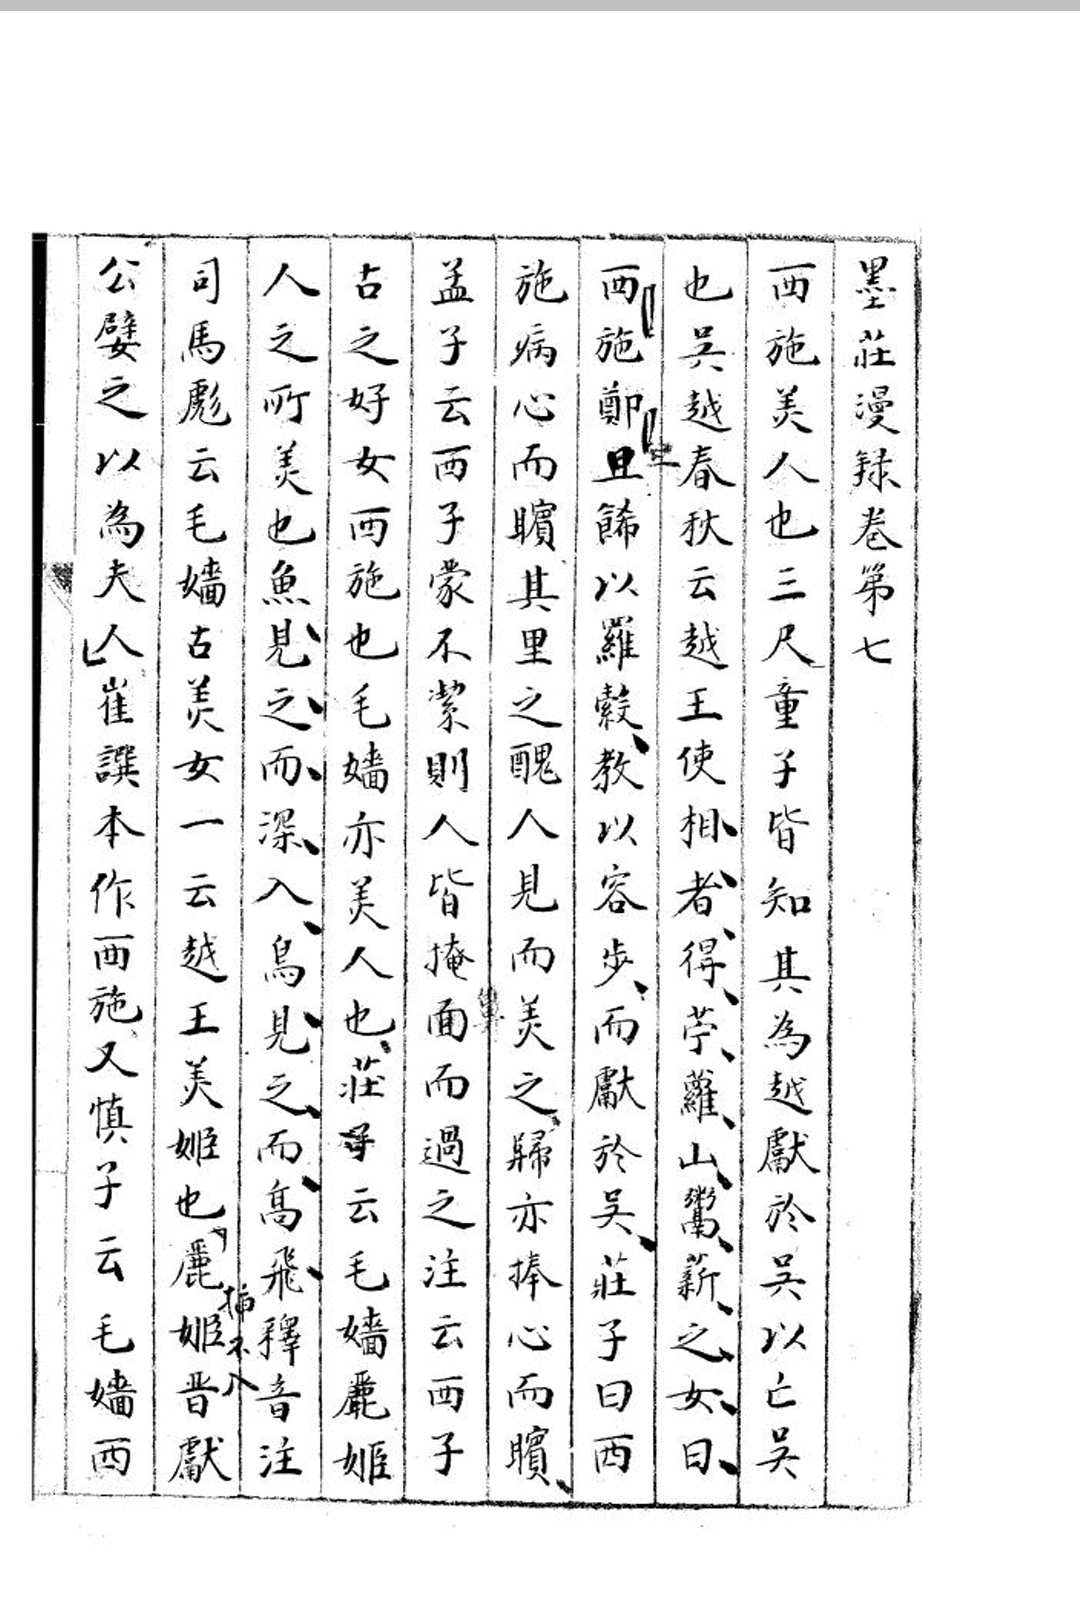 墨莊漫録卷第七
西施美人也三尺童子皆知其為越獻於吳以亡吳
也吳越春秋云越王使相者得苧蘿山鬻薪之女曰
西施鄭旦餙以羅縠教以容步而獻於吳莊子曰西
施病心而矉其里之醜人見而美之歸亦捧心而矉
孟子云西子蒙不絜則人皆掩面而過之注云西子
古之好女西施也毛嬙亦美人也莊子云毛嬙麗姬
人之所美也魚見之而深入鳥見之而高飛釋音注
司馬彪云毛嬙古美女一云越王美姬也麗姬晋獻
公嬖之以為夫人崔譔本作西施又慎子云毛嬙西